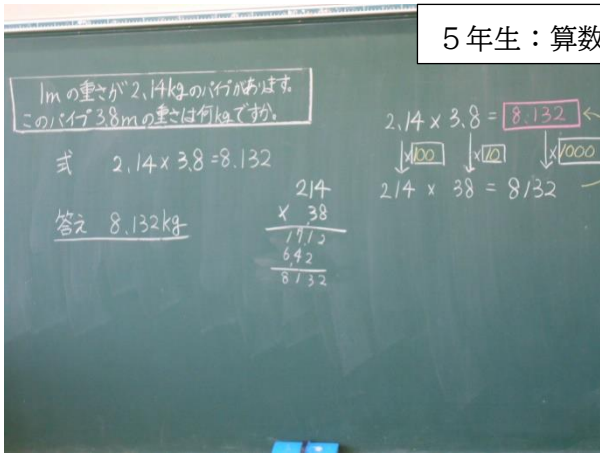 ５年生：算数
1mの重さが2.14kgのパイプがあります。
このパイプ3.8mの重さは何kgですか。
式 2.14×3.8=8.132
答え 8.132kg
214
× 38
1712
642
8132
2.14×3.8=8.132
×100 ×10 ×1000
214 × 38 = 8132